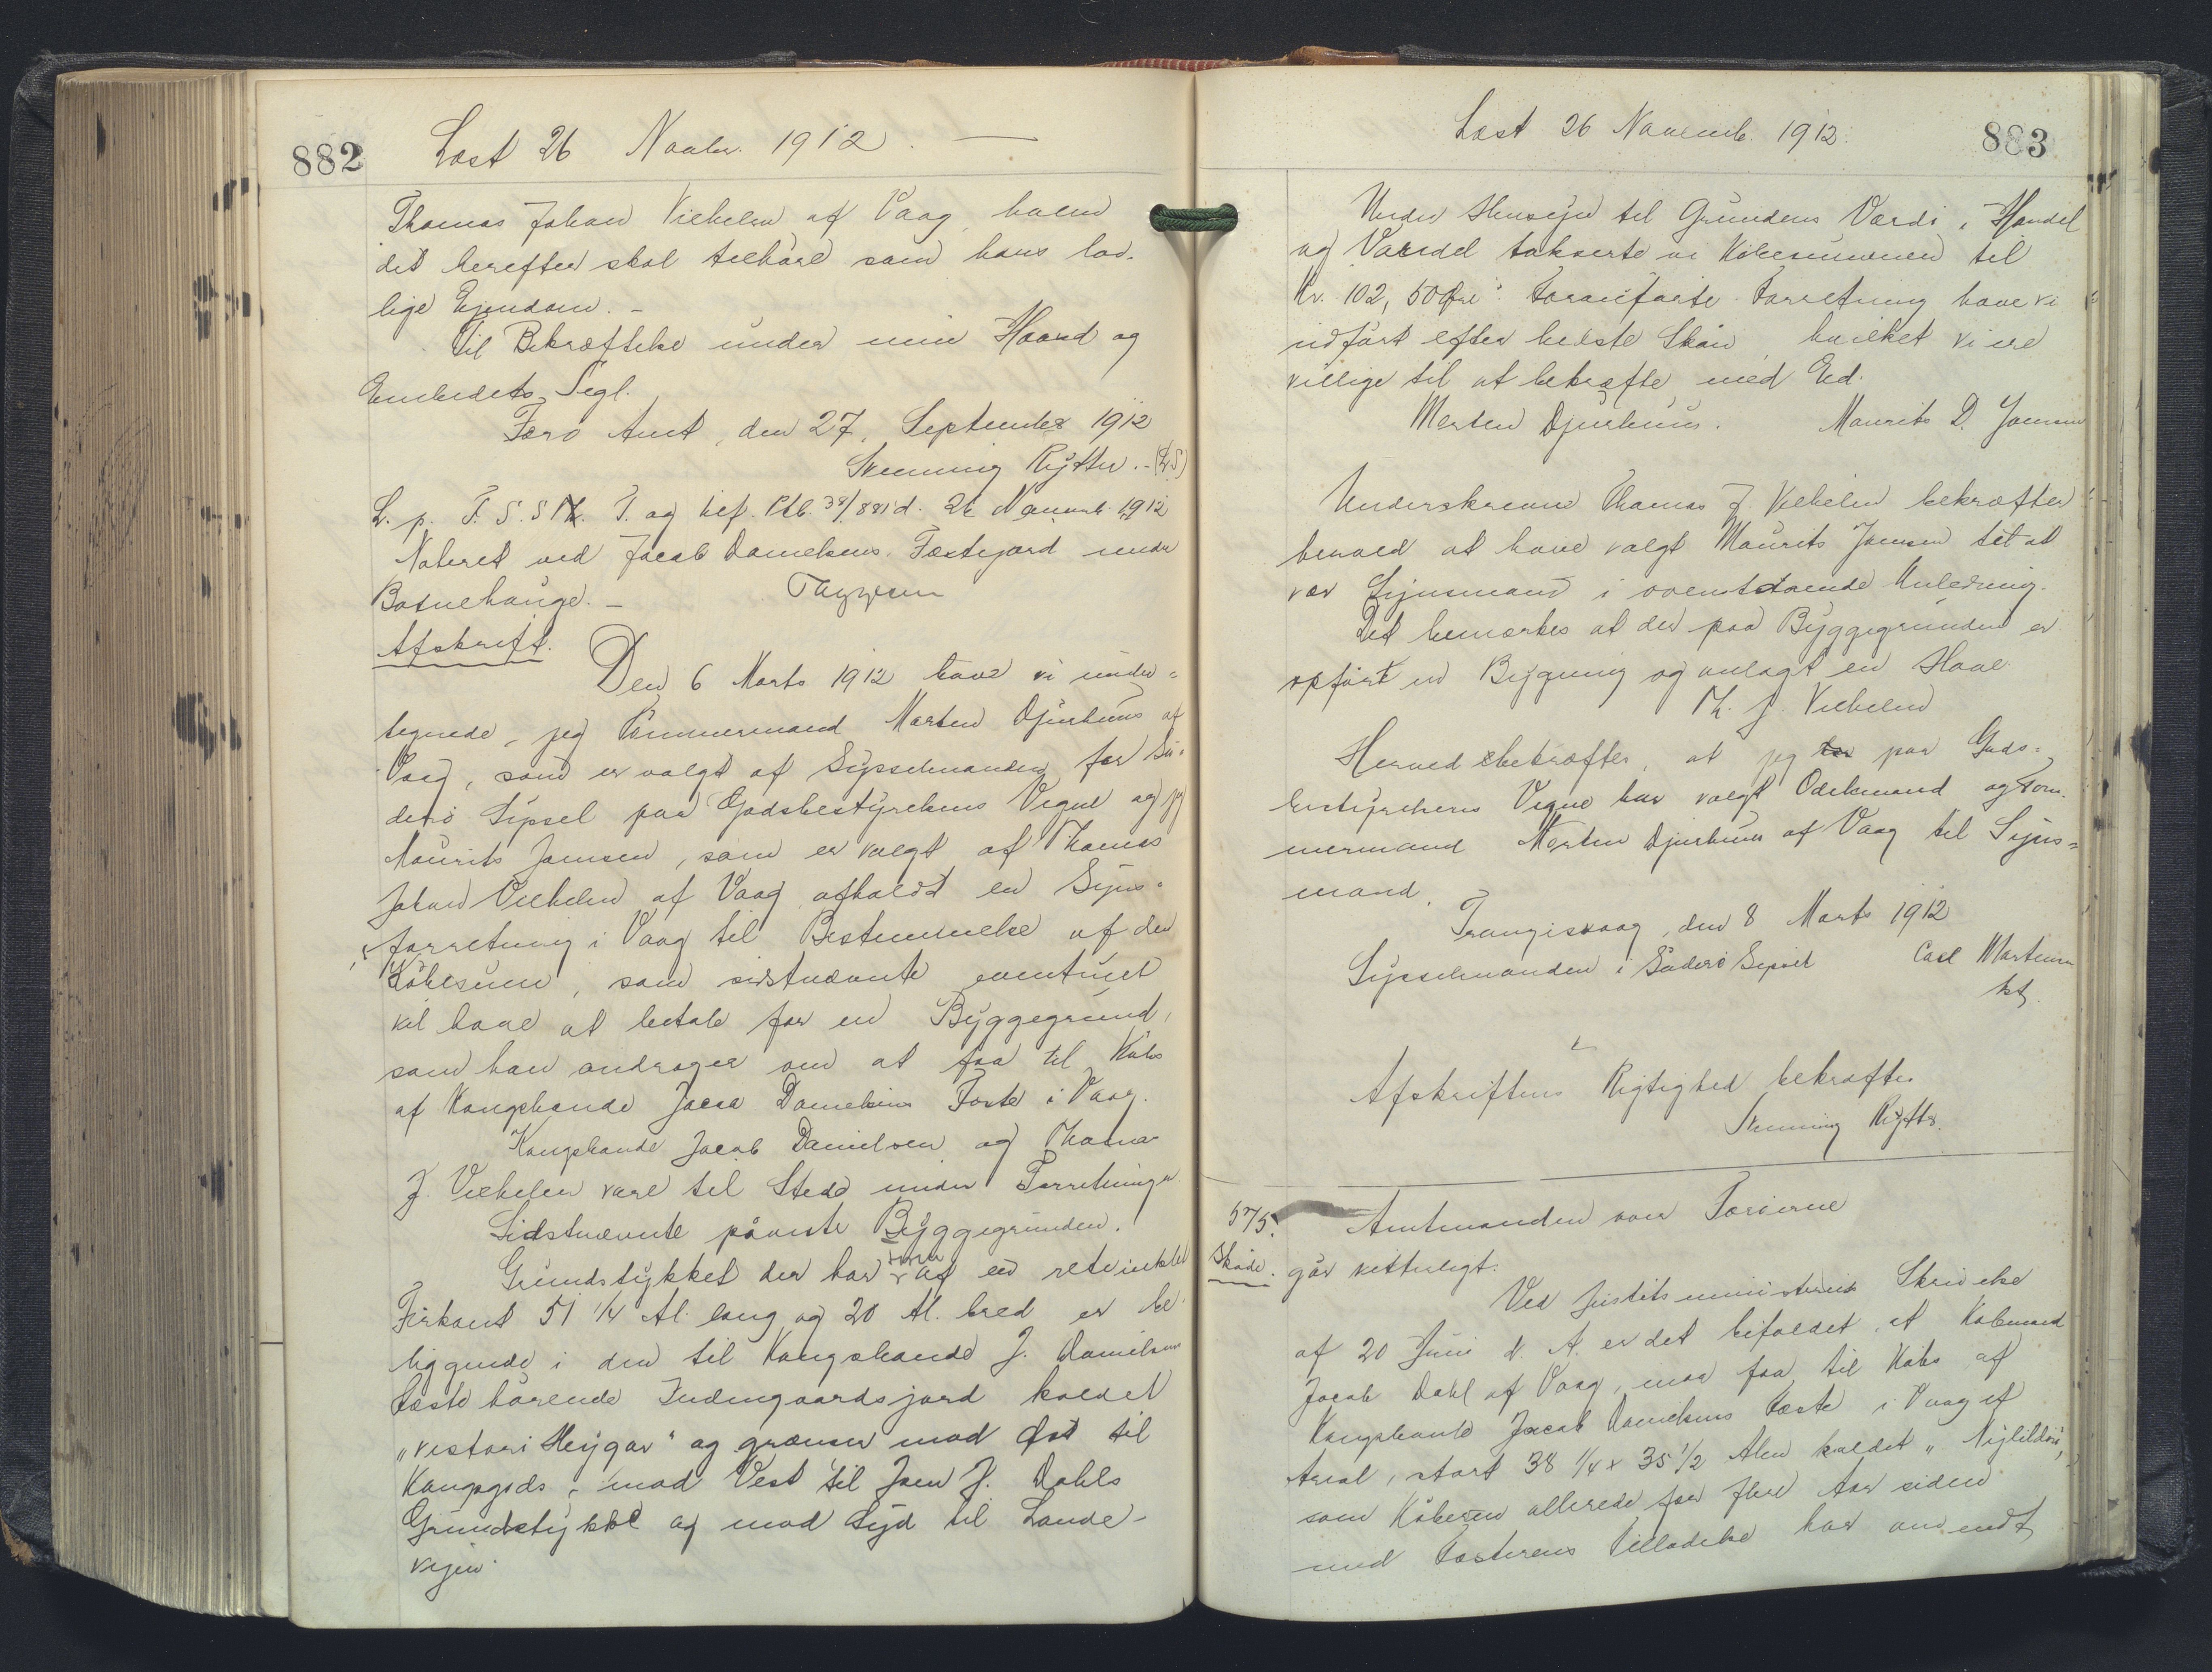 882
Læst 26 Novbr. 1912.
Thomas Johan Vilhelm af Vaag, hvem
det herefter skal tilhøre som hans lov-
lige Ejendom. -
Til Bekræftelse under min Haand og
Embedets Segl.
Færø Amt, den 27. September 1912
Svenning Rytter. - (L.S)
L. p. F. S. S. Th. T. og bef. Ptb. 38/881 d. 26 Novemb. 1912
Noteret ved Jacob Danielsens Fæstejord under
Botnehauge. -
Afskrift.
Den 6 Marts 1912 have vi under=
tegnede, jeg Tömmermand Morten Djurhuus af
Vaag, som er valgt af Sysselmanden for Su=
derö Syssel paa Godsbestyrelsens Vegne og jeg
Mourits Joensen, som er valgt af Thomas
Johan Vilhelm af Vaag afholdt en Syns=
forretning i Vaag til Bestemmelse af den
Köbesum, som sidstnævnte eventuelt
vil have at betale for en Byggegrund,
som han andrager om at faa til Köbs
af Kongsbonde Jacob Danielsens Fæste i Vaag.
Kongsbonde Jacob Danielsen og Thomas
J. Vilhelm vare til Stede under Forretningen
Sidstnævnte påviste Byggegrunden.
Grundstykket der har Form af en retvinklet
Firkant 51 1/4 Al. lang og 20 Al. bred er be=
liggende i den til Kongsbonde J. Danielsens
Fæste hörende Indengaardsjord kaldet
„vestari Heygar" og grænser mod Øst til
Kongsgods, mod Vest til Joen J. Dahls
Grundstykke og mod Syd til Lande-
vejen.
883
Læst 26 Novemb. 1912.
Under Hensyn til Grundens Værdi i Handel
og Vandel takserte vi Köbesummen til
Kr. 102, 50 Øre. Foranförte Forretning have vi
udfört efter bedste Skön, hvilket vi ere
villige til at bekræfte med Ed.
Morten Djurhuus. Mourits D. Joensen
Underskrevne Thomas J. Vilhelm bekræfter
herved at have valgt Mourits Joensen til at
vær Synsmand i ovenstaaende Anledning.
Det bemærkes at der paa Byggegrunden er
opfört en Bygning og anlagt en Have.
Th. J. Vilhelm
Herved bekræftes, at jeg har paa Gods=
bestyrelsens Vegne har valgt Odelsmand og Töm-
mermand Morten Djurhuus af Vaag til Syns=
mand.
Trangisvaag, den 8 Marts 1912
Sysselmanden i Suderö Syssel Carl Mortensen
kst
Afskriftens Rigtighed bekræftes
Svenning Rytter.
575. Amtmanden over Færöerne
Sköde. gör vitterligt:
Ved Justitsministeriets Skrivelse
af 20 Juni d. A. er det bifaldet, at Köbmand
Jacob Dahl af Vaag, maa faa til Köbs af
Kongsbonde Jacob Danielsens Fæste i Vaag et
Areal, stort 38 1/4 x 35 1/2 Alen kaldet
som Köberen allerede for flere Aar siden
med Fæsterens Tilladelse har anvendt